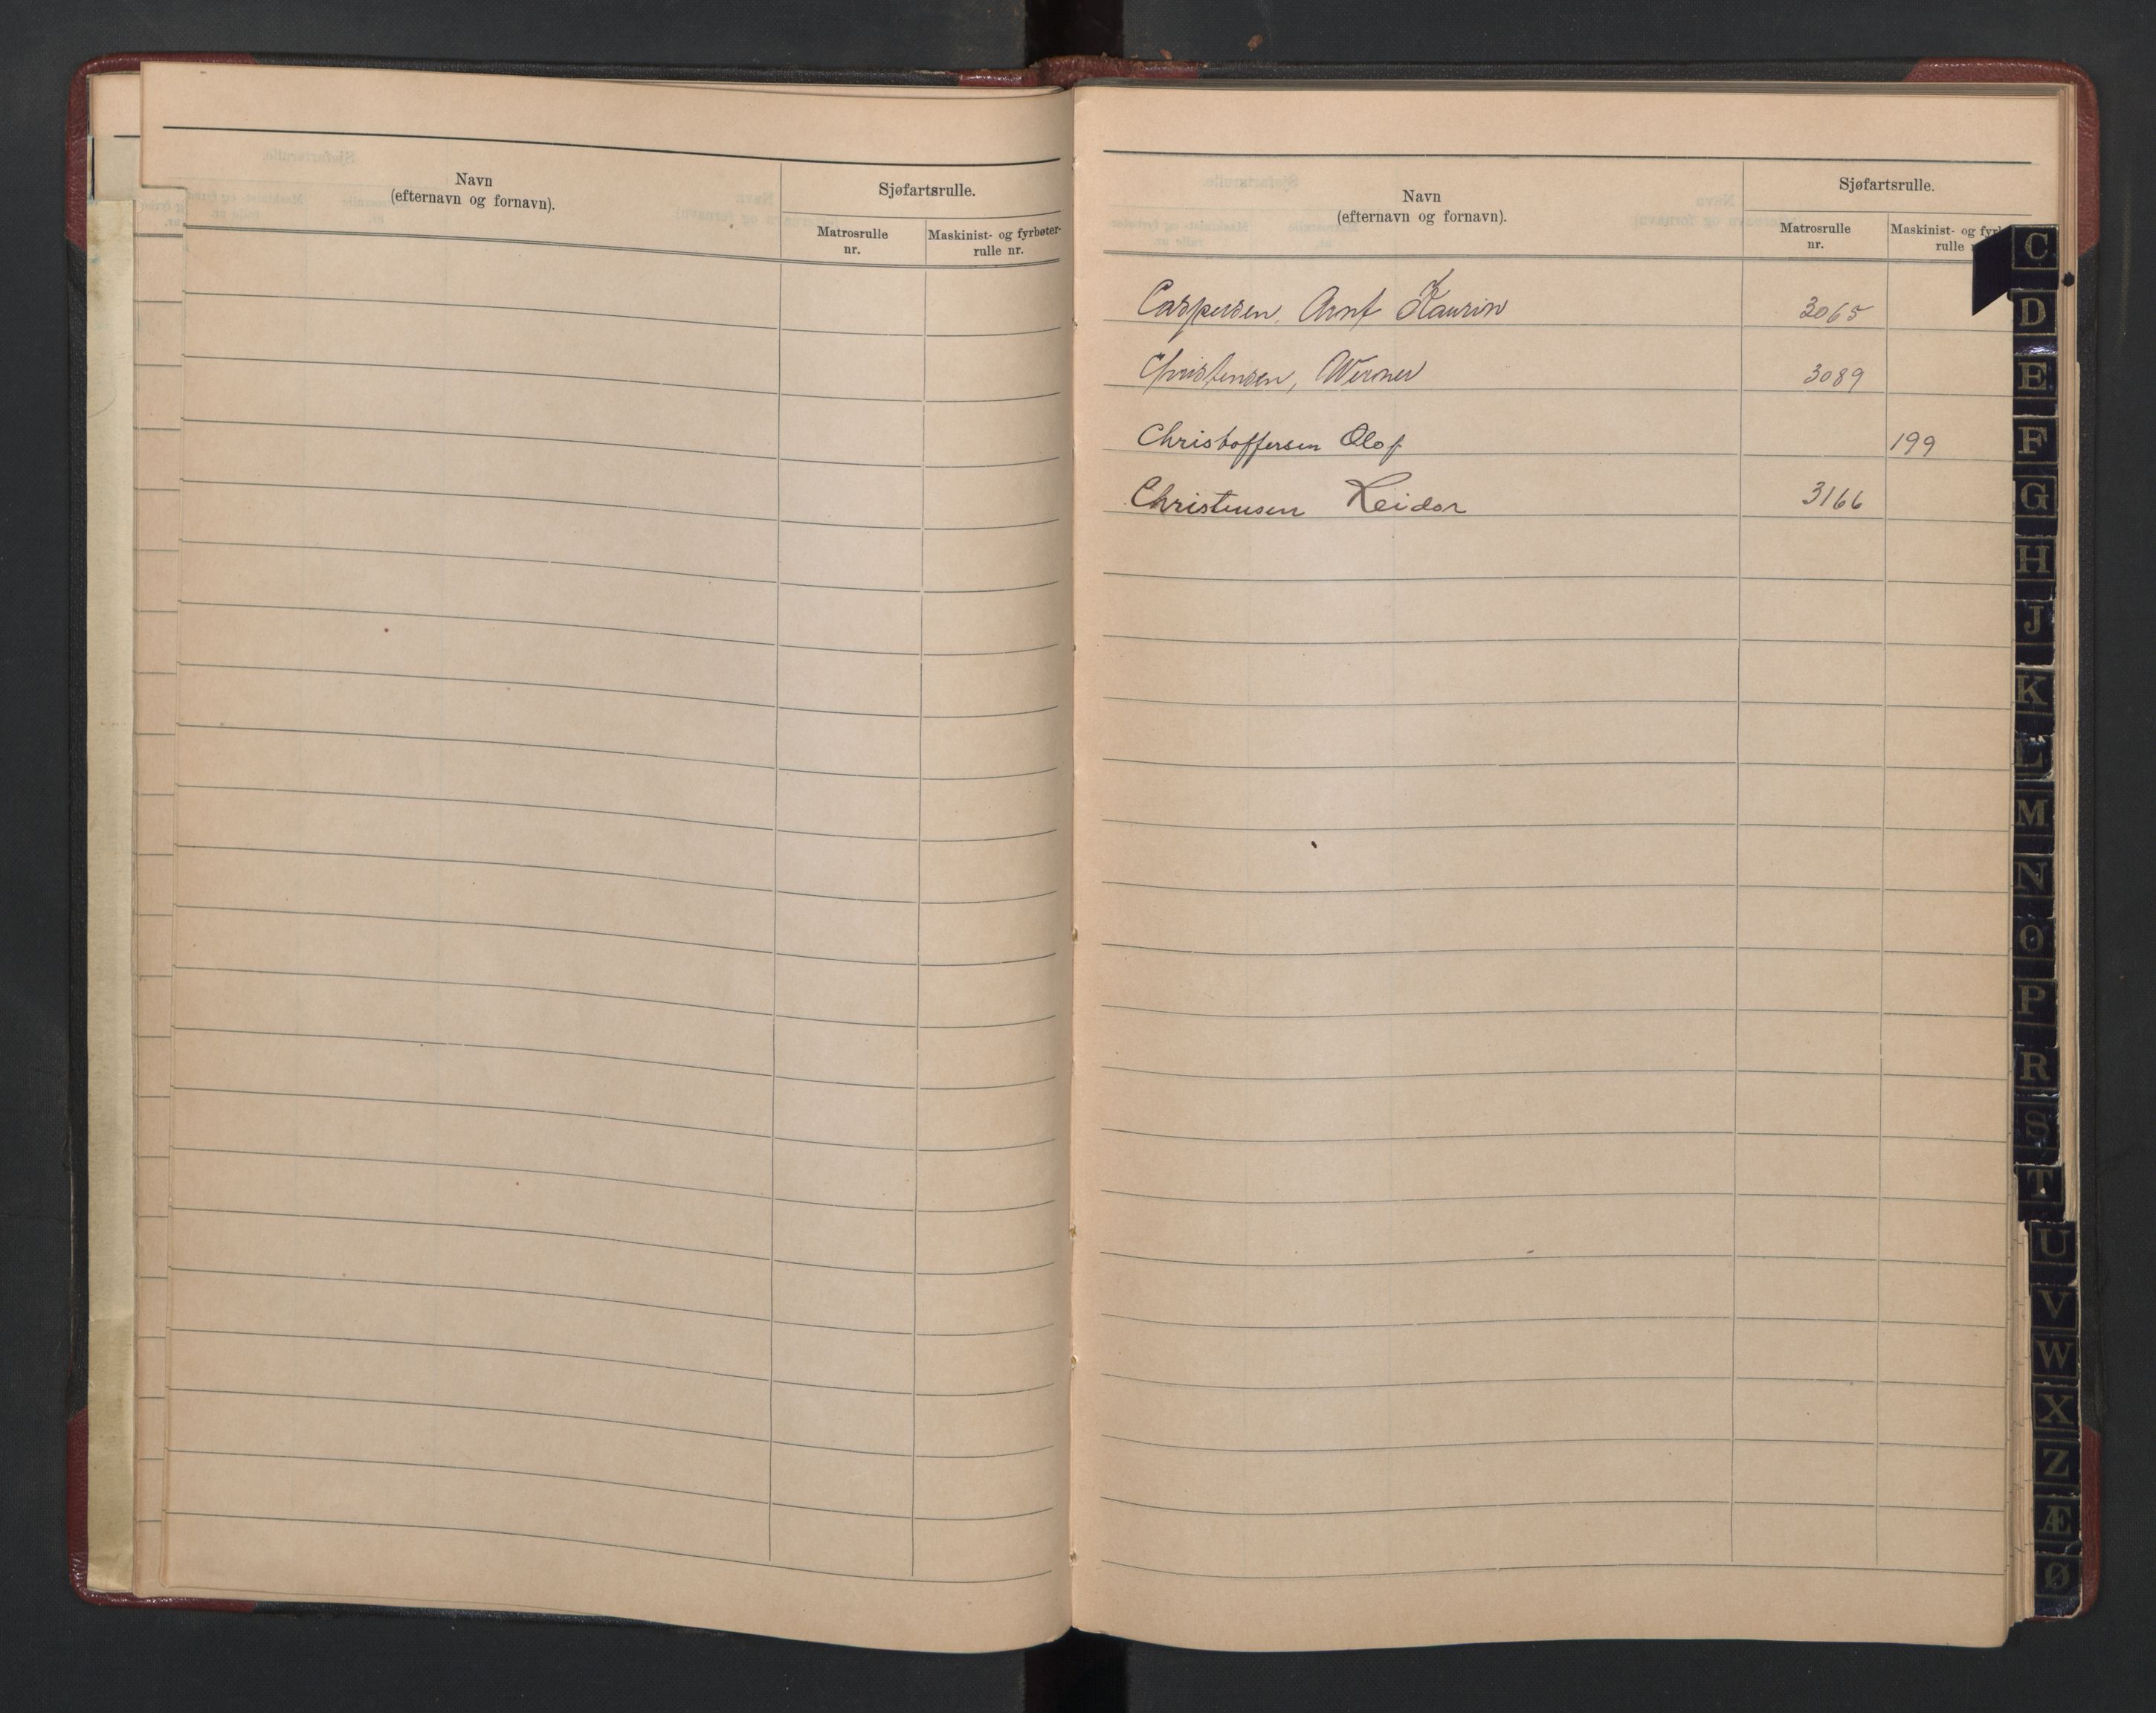 Navn
(efternavn og fornavn).
Sjøfartsrulle.
Matrosrulle
nr.
Maskinist- og fyrbøter-
rulle nr.
Navn
(efternavn og fornavn).
Sjøfartsrulle.
Matrosrulle
nr.
Maskinist- og fyrb
rulle n
Caspersen, Arnt Kaurin 3065
Christensen, Werner 3089
Christoffersen Olof 199
Christensen Reidar 3166
C
D
E
F
G
H
J
K
L
M
N
O
P
R
S
T
U
V
W
X
Z
Æ
Ø